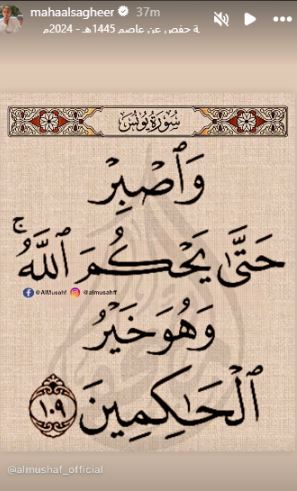 mahaalsagheer 37m
ـة حفص عن عاصم 1445هـ - 2024م
سُورَةُ يُونُسَ
وَٱصْبِرْ
حَتَّىٰ يَحْكُمَ ٱللَّهُۚ
@AlMusahf @almusahff
وَهُوَ خَيْرُ
ٱلْحَـٰكِمِينَ ١٠٩
@almushaf_official